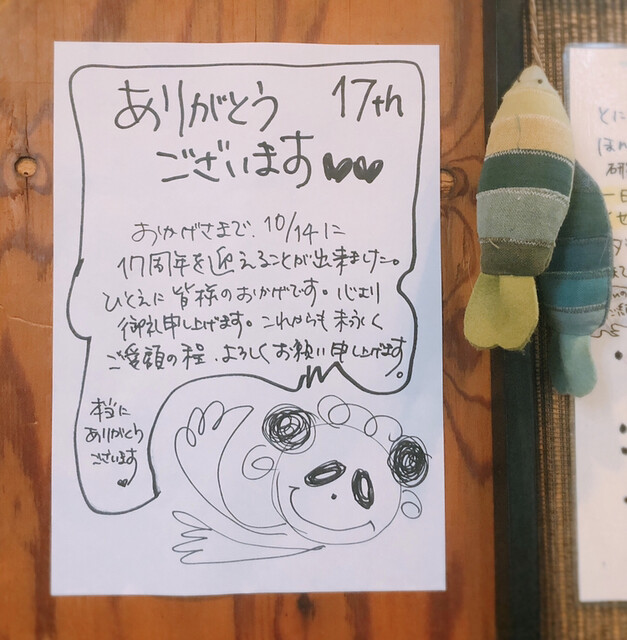 ありがとう 17th
ございます
おかげさまで、10/14に
17周年を迎えることが出来ました。
ひとえに皆様のおかげです。心より
御礼申し上げます。これからも末永く
ご愛顧の程、よろしくお願い申し上げます。
本当に
ありがとう
ございます
とに
ほん
研
一日